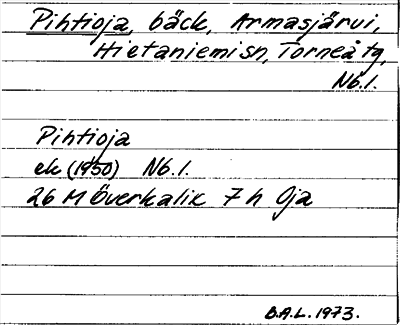 Pihtioja, bäck, Armasjärvi,
Hietaniemi sn, Torneå tg,
Nb.l.
Pihtioja
ek (1950) Nb.l.
26 M Överkalix 7h Oja
B.A.L. 1973.